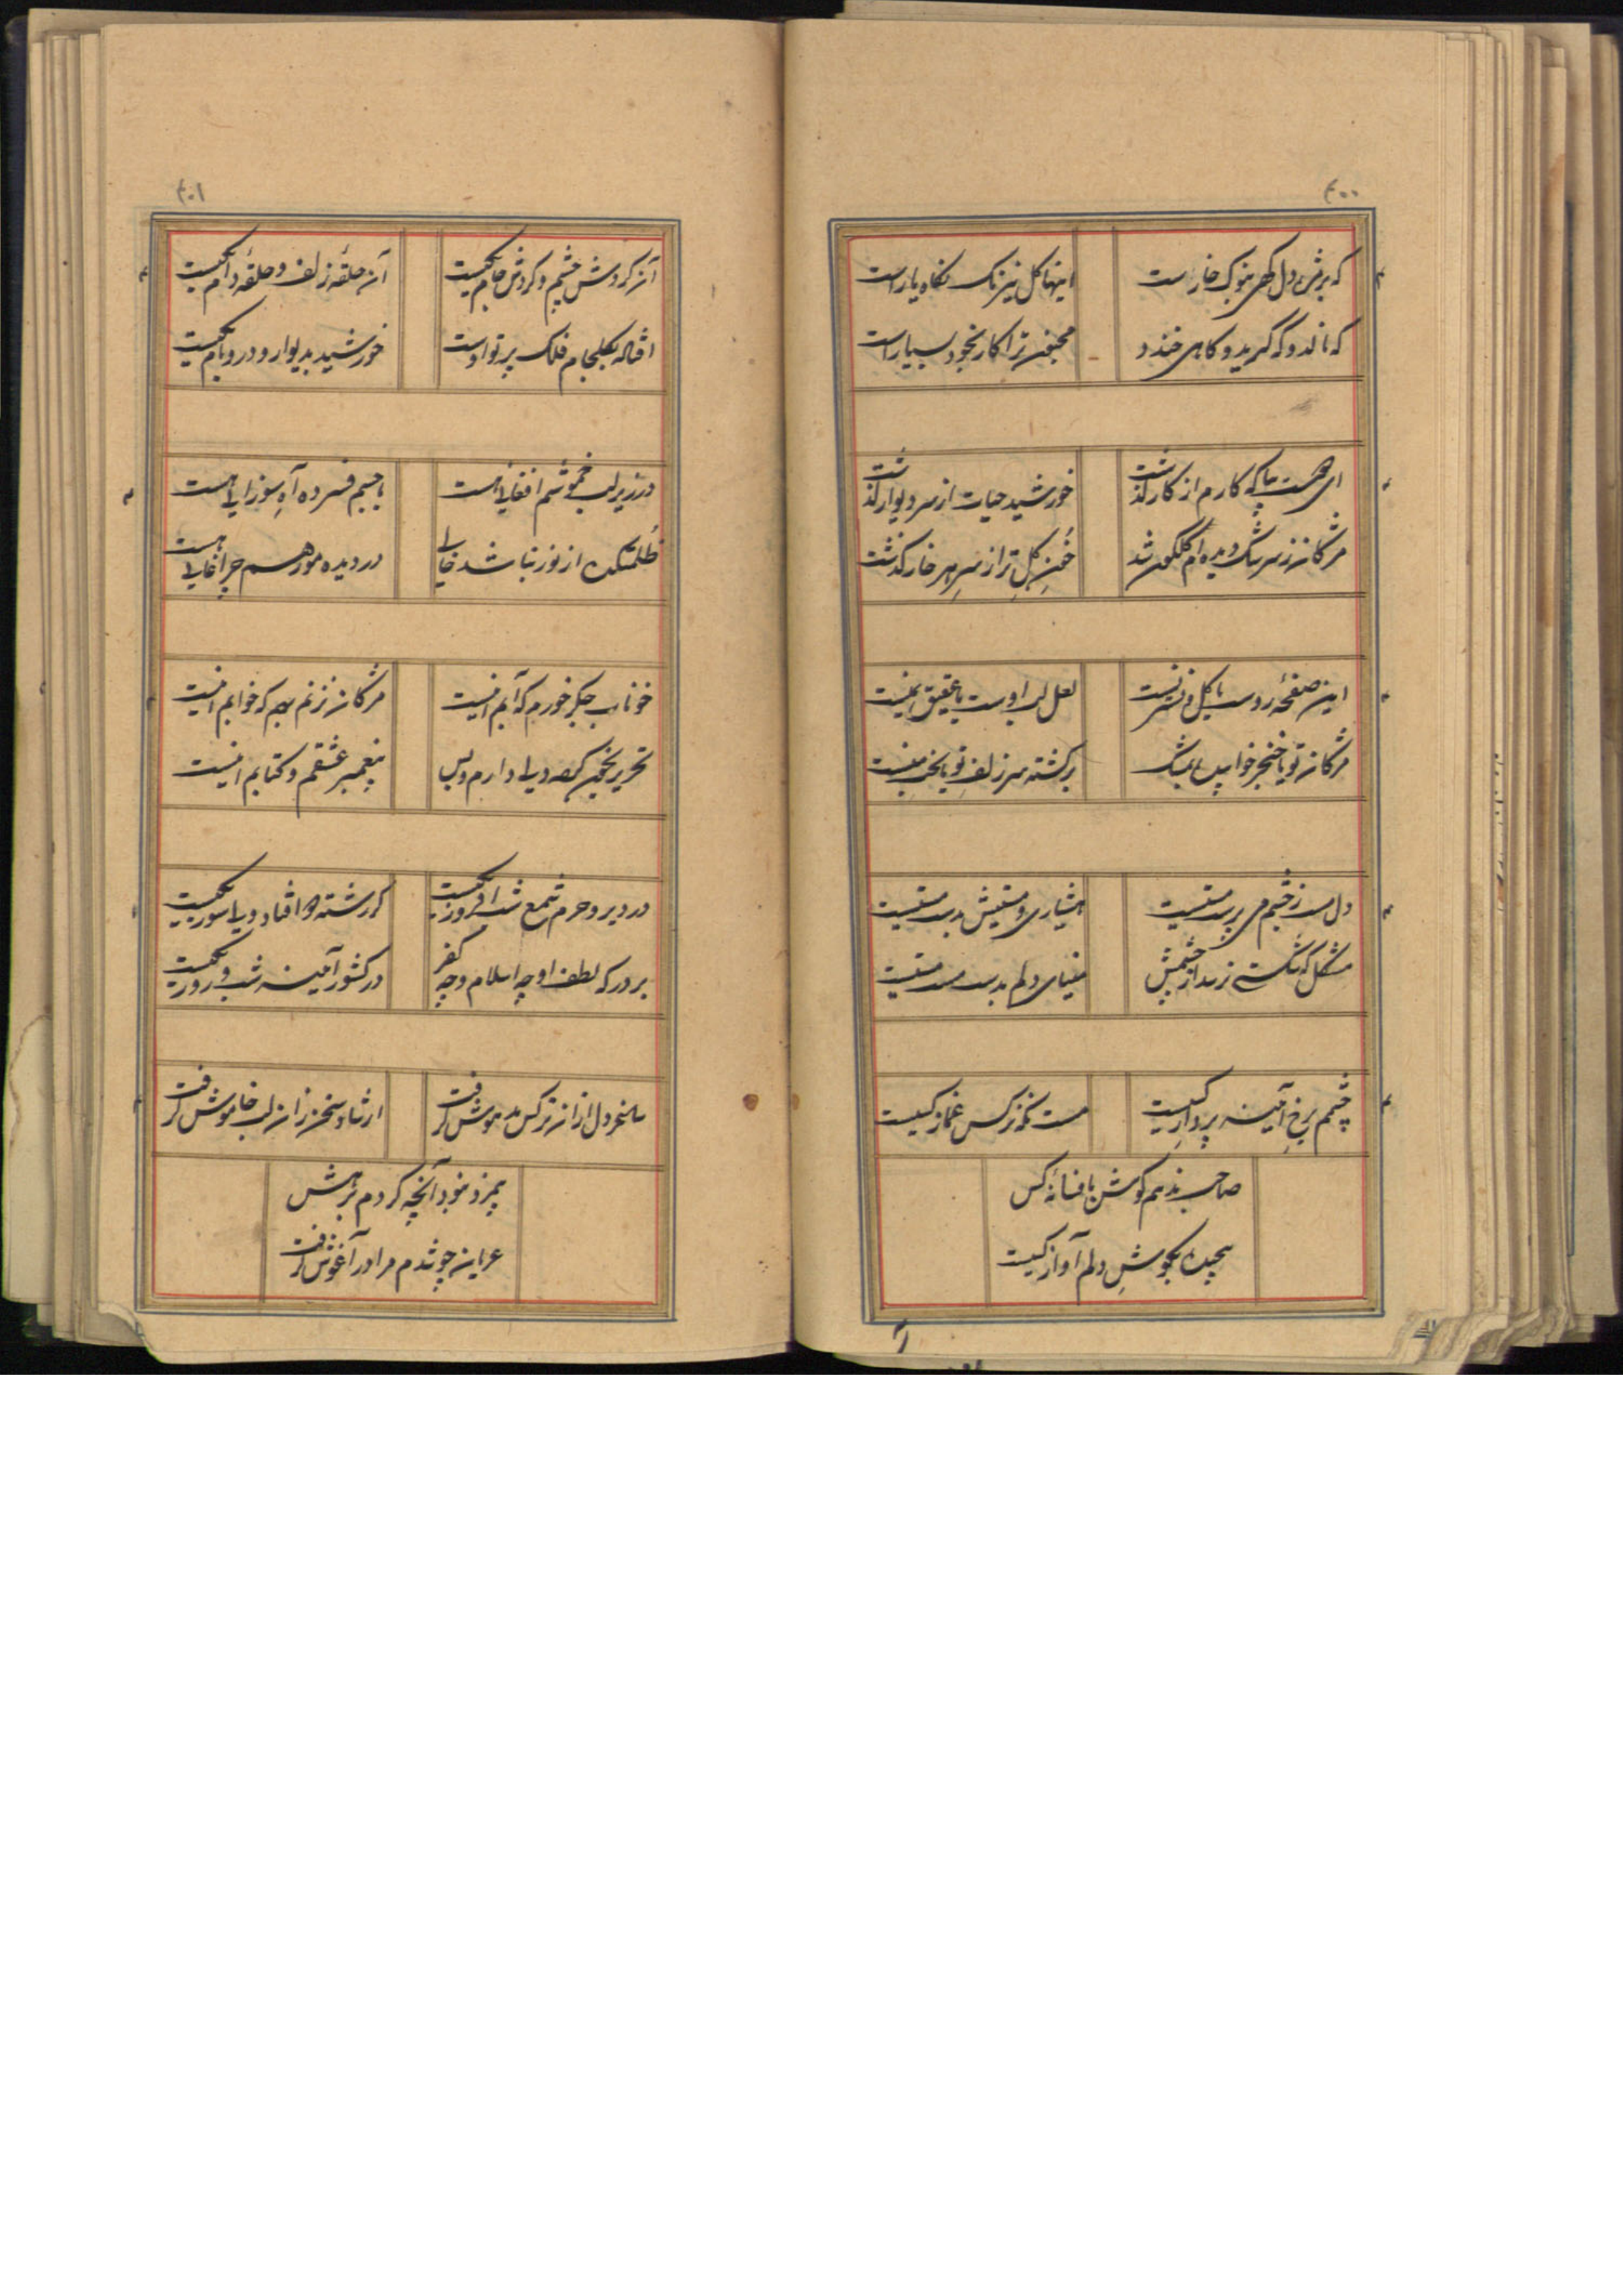 ۴۰۰
که برشِ دل گهی بنوک خار است
اینها گل نیرنگ نگاه یار است
که نالد و که گرید و کاهی خندد
مجنون ترا کار بخود بسیار است
ای همت پا که کارم از کار گذشت
خورشید حیات از سر دیوار گذشت
مژکان ز سرشک دیده ام کلکون شد
خونِ کلِ تر از سرِ هر خار گذشت
این صفحهٔ روست یا کل و نسرینست
لعل لب اوست یا عقیق یمنست
مژکان تو یا خنجر خواب
برکشته سر زلفِ تو یا بخت منست
دل مست ز چشم می پرست مستیست
هشیاری و مستیش بدست مستیست
مشکل که شکسته نزید از چشمش
مینای دلم بدست مست مستیست
چشمم برخِ آئینه پرداز کیست
مست نکه نرکس غماز کیست
صاحب ندهم کوش بافسانهٔ کس
پیچیده بکوشِ دلم آواز کیست
۴۰۱
آن کردش چشم و کردش جام یکیست
آن حلقهٔ زلف و حلقهٔ دام یکیست
افتاله بکلجام فلک پرتو اوست
خورشید بدیوار و در و بام یکیست
در زیر لب خموشم افغانی هست
با جسم فسرده آهِ سوزانی هست
ظلمتکده از نور نباشد خالی
در دیده مور هم چراغانی هست
خوناب جکر خورم که آبم اینست
مژکان نزنم بهم که خوابم اینست
تحریر بخون کرده دلی دارم و بس
پیغمبر عشقم و کتابم اینست
در دیر و حرم شمع شب افروز یکیست
کر رشته دو افتاد ولی سوز یکیست
بر درکه لطف او چه اسلام و چه کفر
در کشور آئینه شب و روز یکیست
ساغر دل از آن نرکس مدهوش کرفت
ارشاد سخن زان لب خاموش کرفت
بمزد نبود آنچه کردم برهش
عریان چو شدم مرا در آغوش کرفت